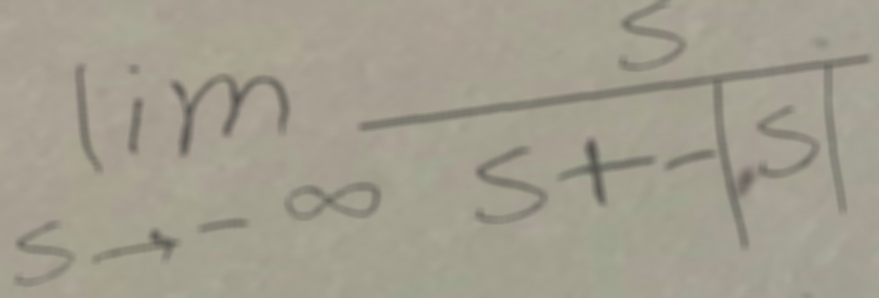 lim s→-∞ s/(s+-|.s|)